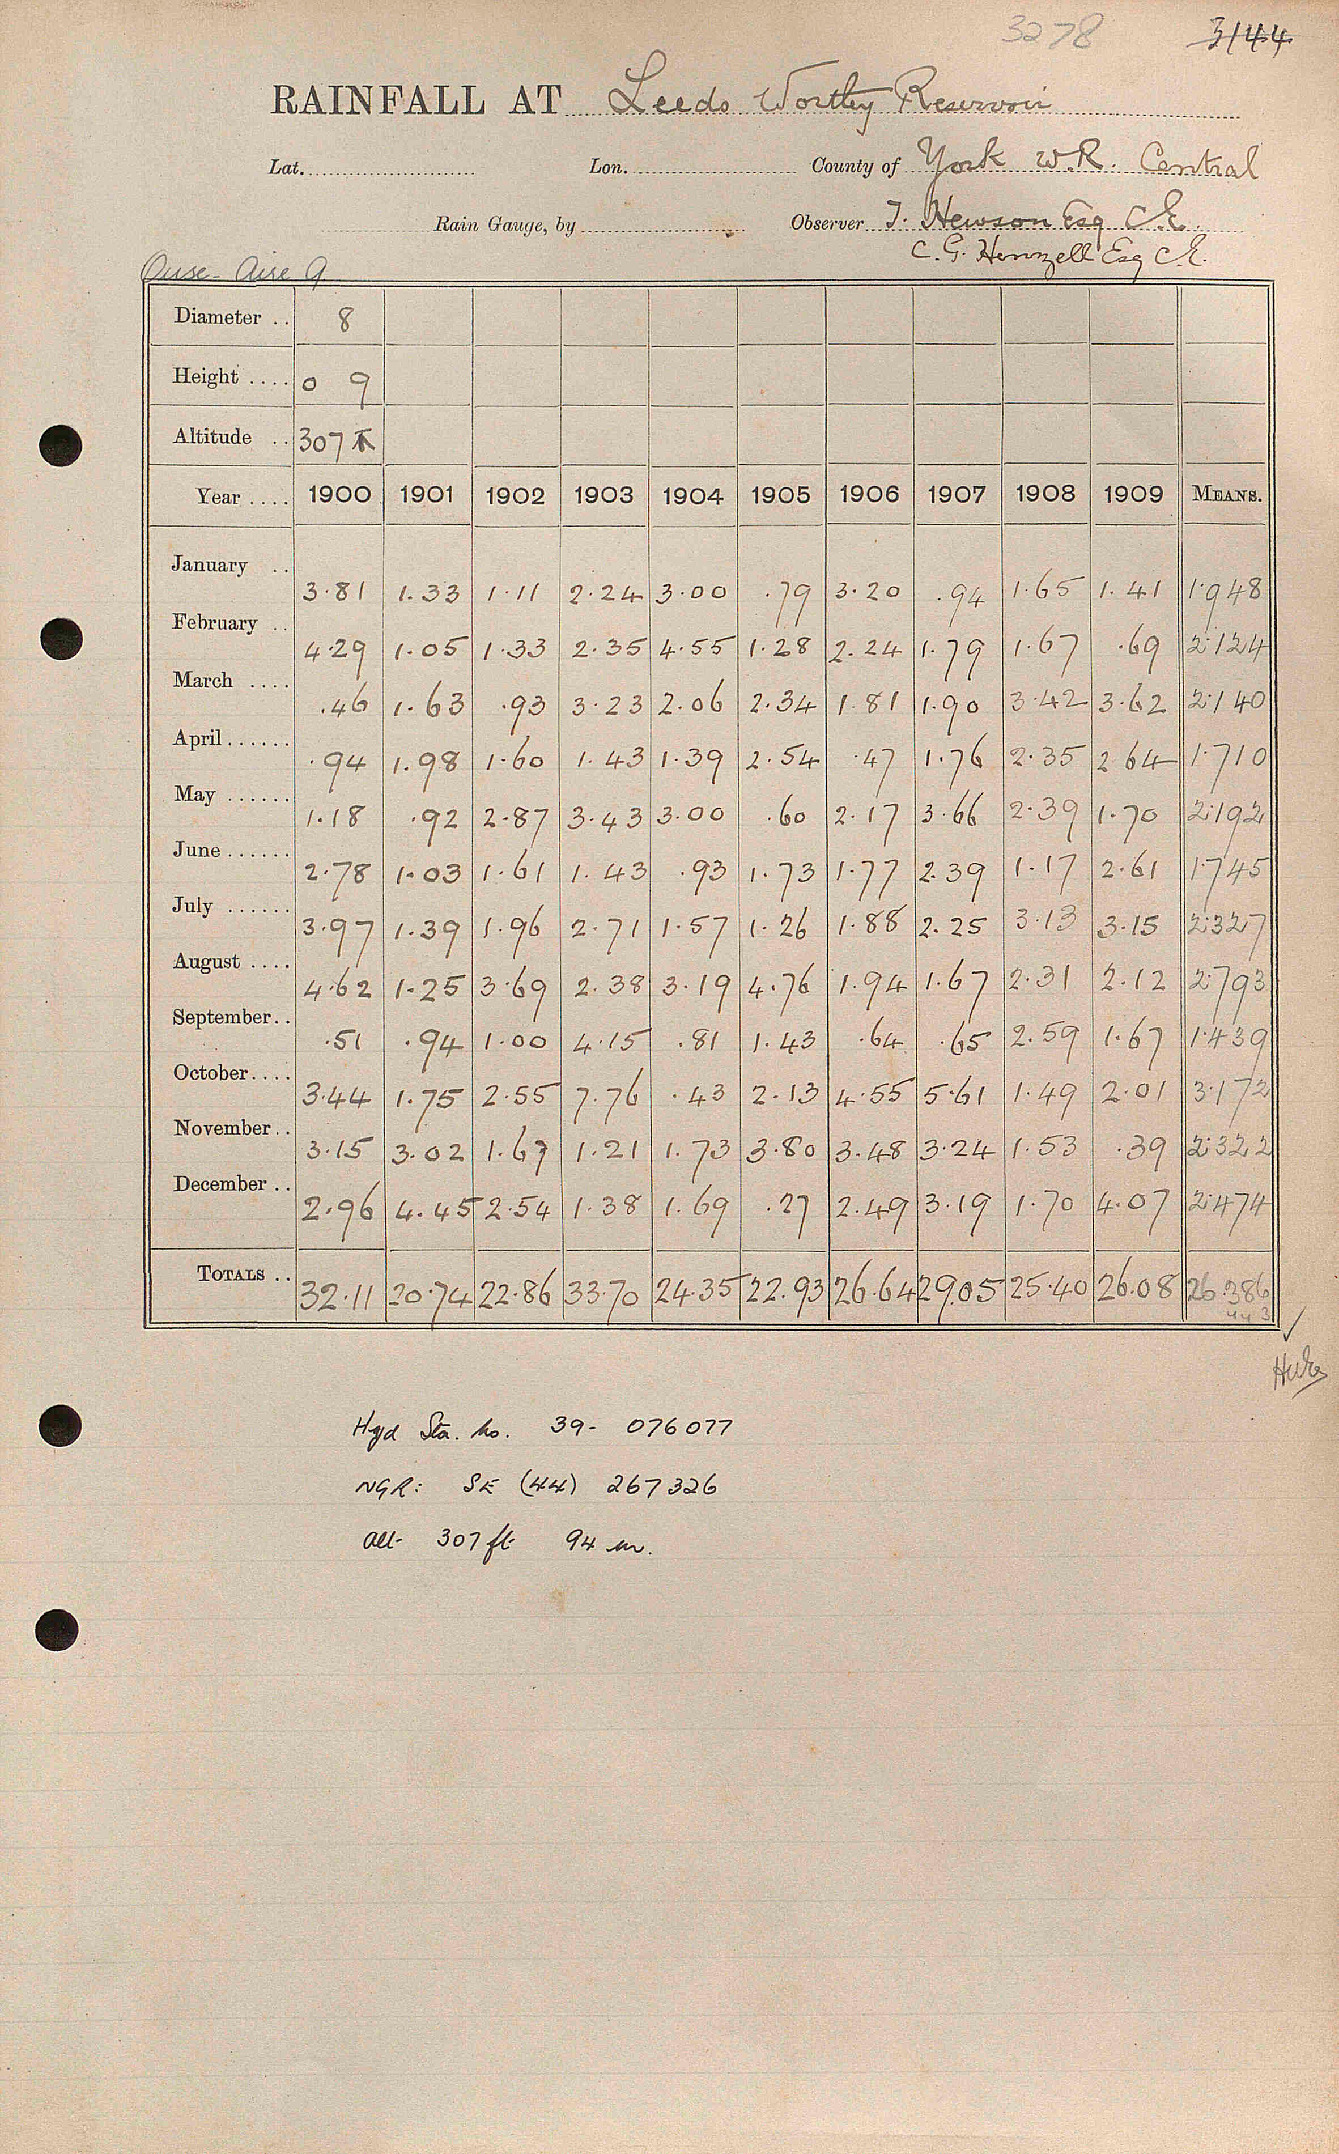 3278 3144
RAINFALL AT Leeds Wortley Reservoir
Lat. Lon. County of York W.R. Central
Rain Gauge, by Observer T. Hewson Esq C.E.
C. G. Henzell Esq C.E.
Ouse - Aire 9
Diameter .. 8
Height .... 0 9
Altitude .. 307
Year .... 1900 1901 1902 1903 1904 1905 1906 1907 1908 1909 MEANS.
January .. 3.81 1.33 1.11 2.24 3.00 .79 3.20 .94 1.65 1.41 1.948
February .. 4.29 1.05 1.33 2.35 4.55 1.28 2.24 1.79 1.67 .69 2.124
March .... .46 1.63 .93 3.23 2.06 2.34 1.81 1.90 3.42 3.62 2.140
April ...... .94 1.98 1.60 1.43 1.39 2.54 .47 1.76 2.35 2.64 1.710
May ...... 1.18 .92 2.87 3.43 3.00 .60 2.17 3.66 2.39 1.70 2.192
June ...... 2.78 1.03 1.61 1.43 .93 1.73 1.77 2.39 1.17 2.61 1.745
July ...... 3.97 1.39 1.96 2.71 1.57 1.26 1.88 2.25 3.13 3.15 2.327
August .... 4.62 1.25 3.69 2.38 3.19 4.76 1.94 1.67 2.31 2.12 2.793
September .. .51 .94 1.00 4.15 .81 1.43 .64 .65 2.59 1.67 1.439
October .... 3.44 1.75 2.55 7.76 .43 2.13 4.55 5.61 1.49 2.01 3.172
November .. 3.15 3.02 1.67 1.21 1.73 3.80 3.48 3.24 1.53 .39 2.322
December .. 2.96 4.45 2.54 1.38 1.69 .27 2.49 3.19 1.70 4.07 2.474
TOTALS .. 32.11 20.74 22.86 33.70 24.35 22.93 26.64 29.05 25.40 26.08 26.386
Hyd Sta. No. 39- 076077
NGR: SE (44) 267326
Alt- 307 ft 94 m.